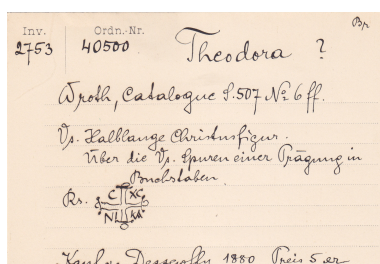 Bpr
Inv. Ordn.-Nr.
2753 40500 Theodora ?
Wroth, Catalogue S.507 № 6 ff.
Vs. Halblange Christusfigur.
Über die Vs. Spuren einer Prägung in
Buchstaben.
Rs. IC XC
NI KA
1880 Preis 5 er